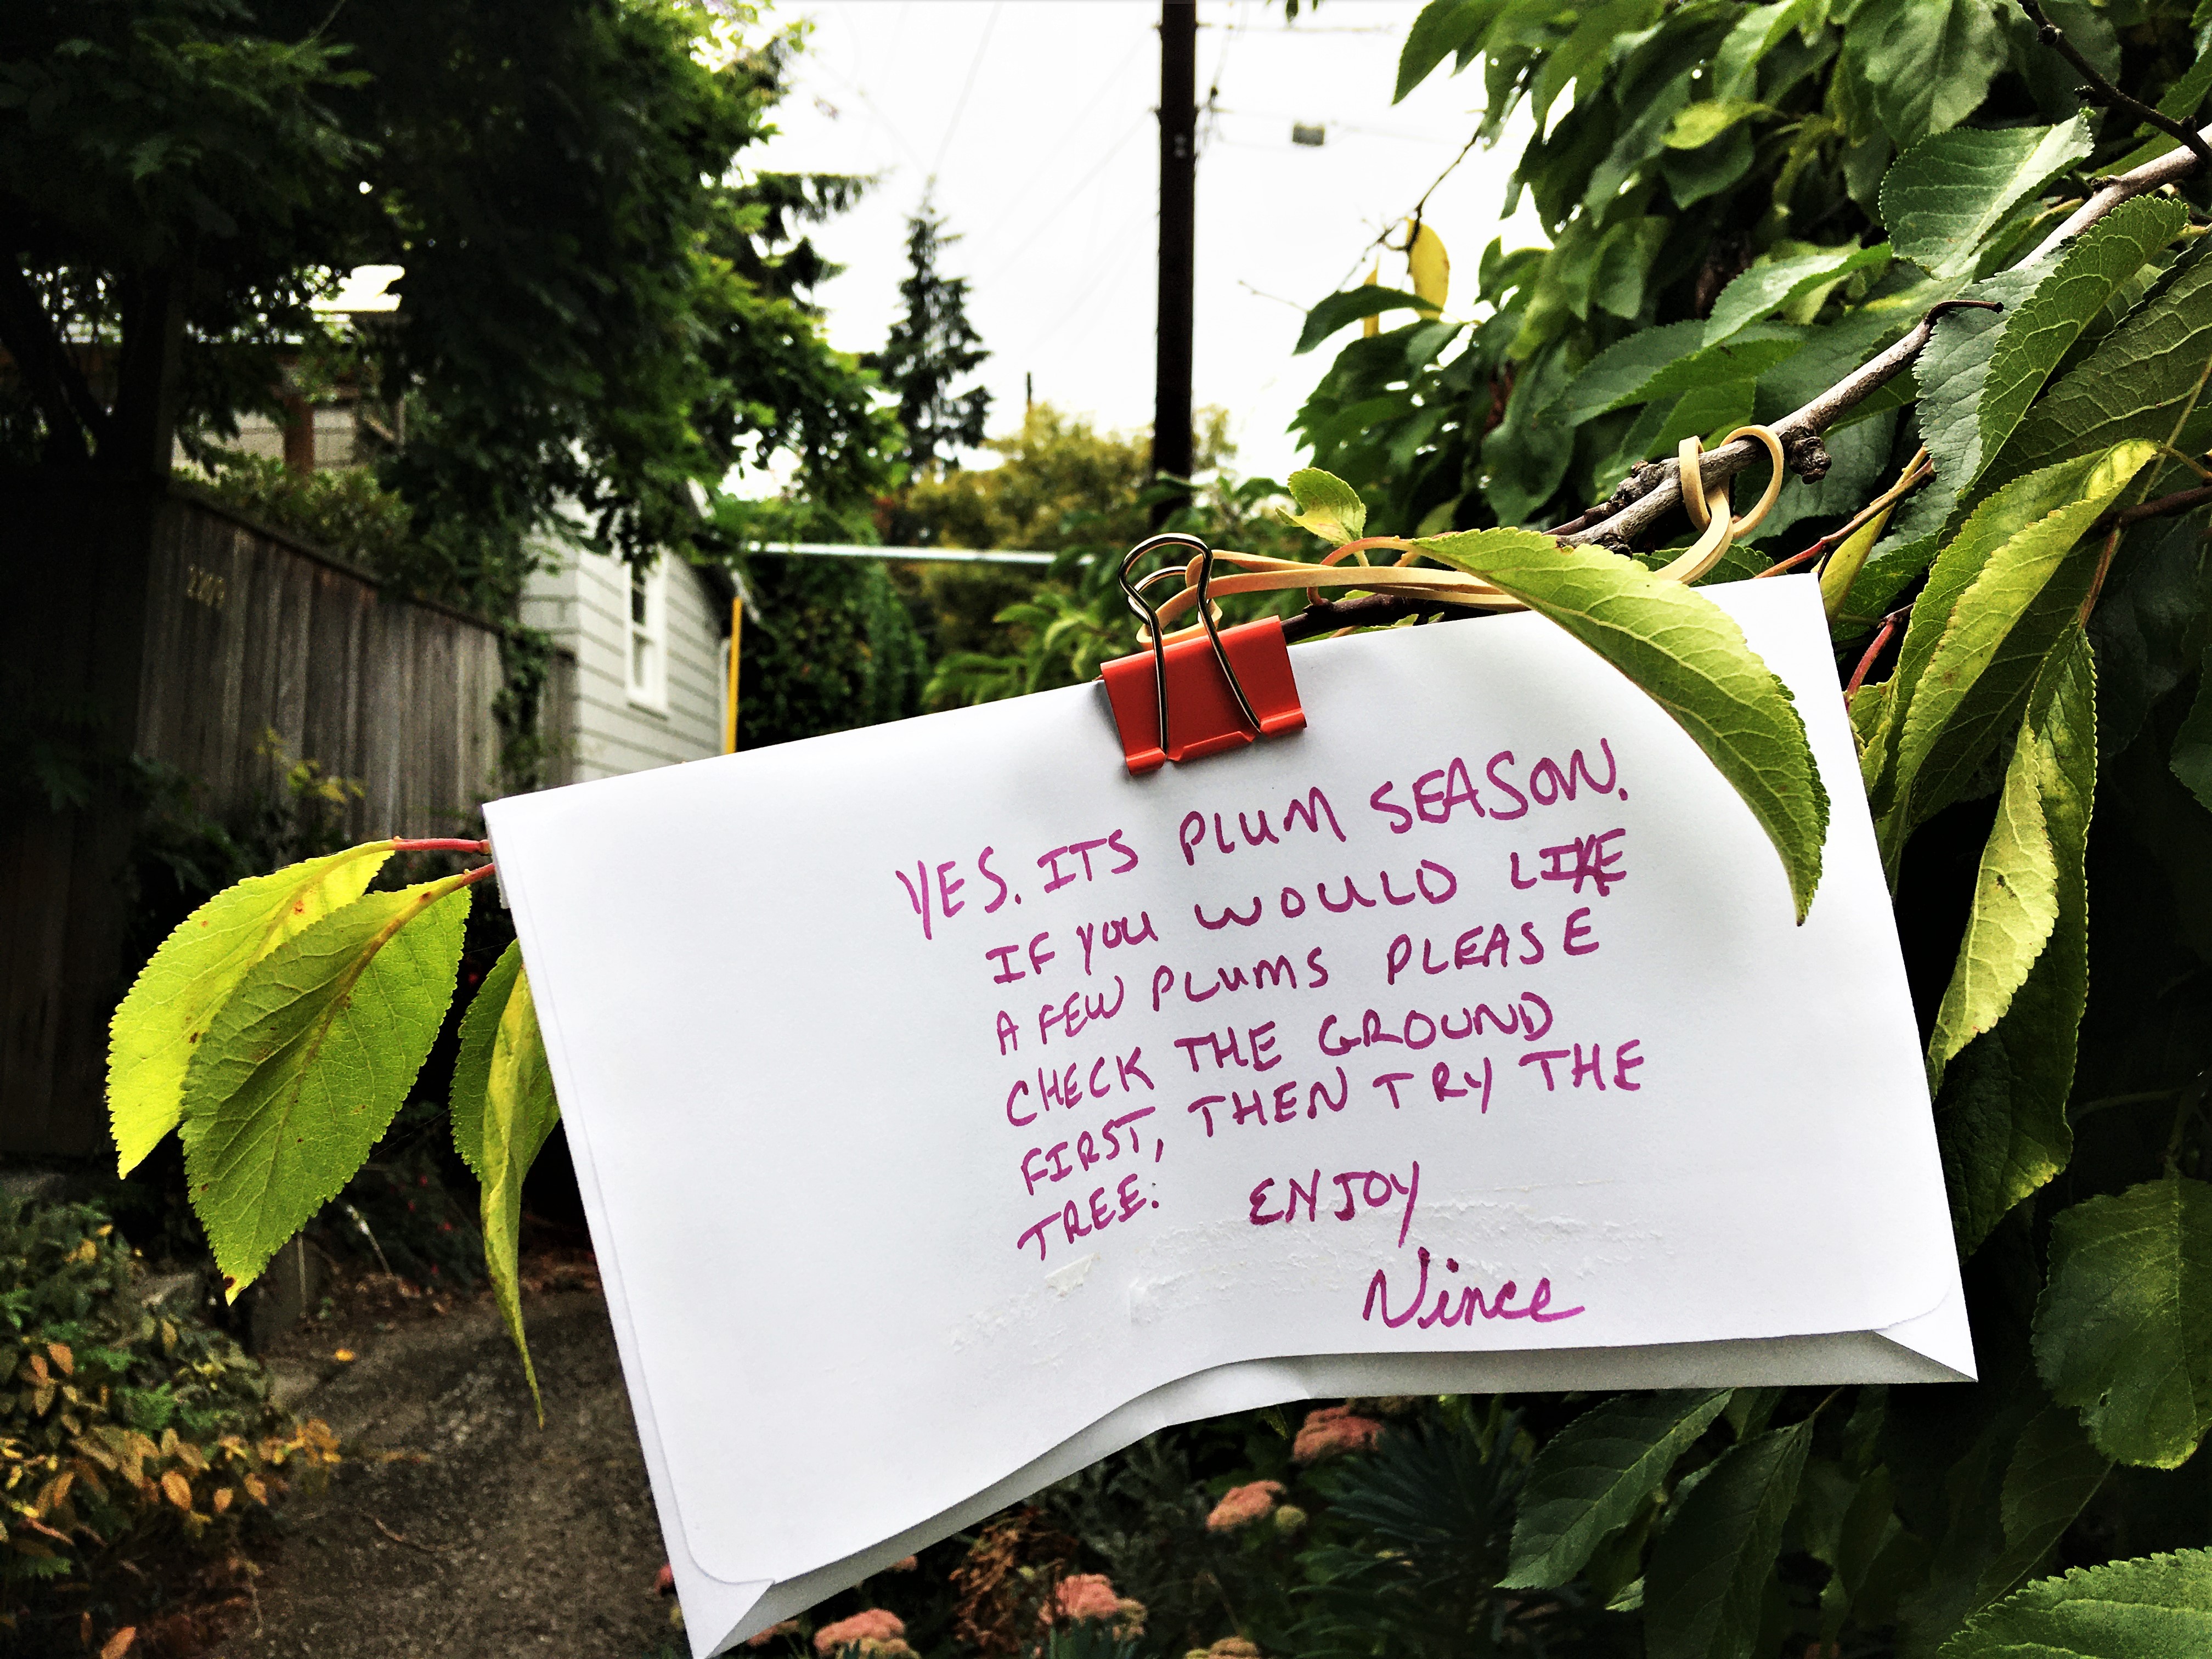 YES. ITS PLUM SEASON.
IF YOU WOULD LIKE
A FEW PLUMS PLEASE
CHECK THE GROUND
FIRST, THEN TRY THE
TREE. ENJOY
Vince